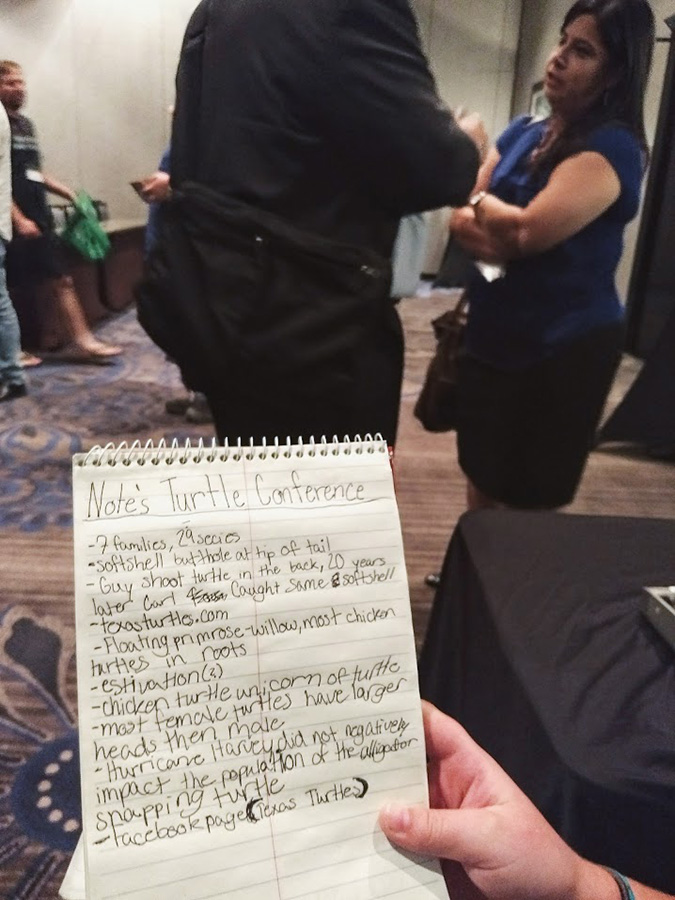 Note's Turtle Conference
-7 families, 29 secies
-softshell butthole at tip of tail
-Guy shoot turtle in the back, 20 years
later Carl Caught same softshell
-texasturtles.com
-Floating primrose-willow, most chicken
turtles in roots
-estivation(?)
-chicken turtle unicorn of turtle
-most female turtles have larger
heads then male
-Hurricane Harvey did not negatively
impact the population of the alligator
snapping turtle
-facebook page (Texas Turtles)